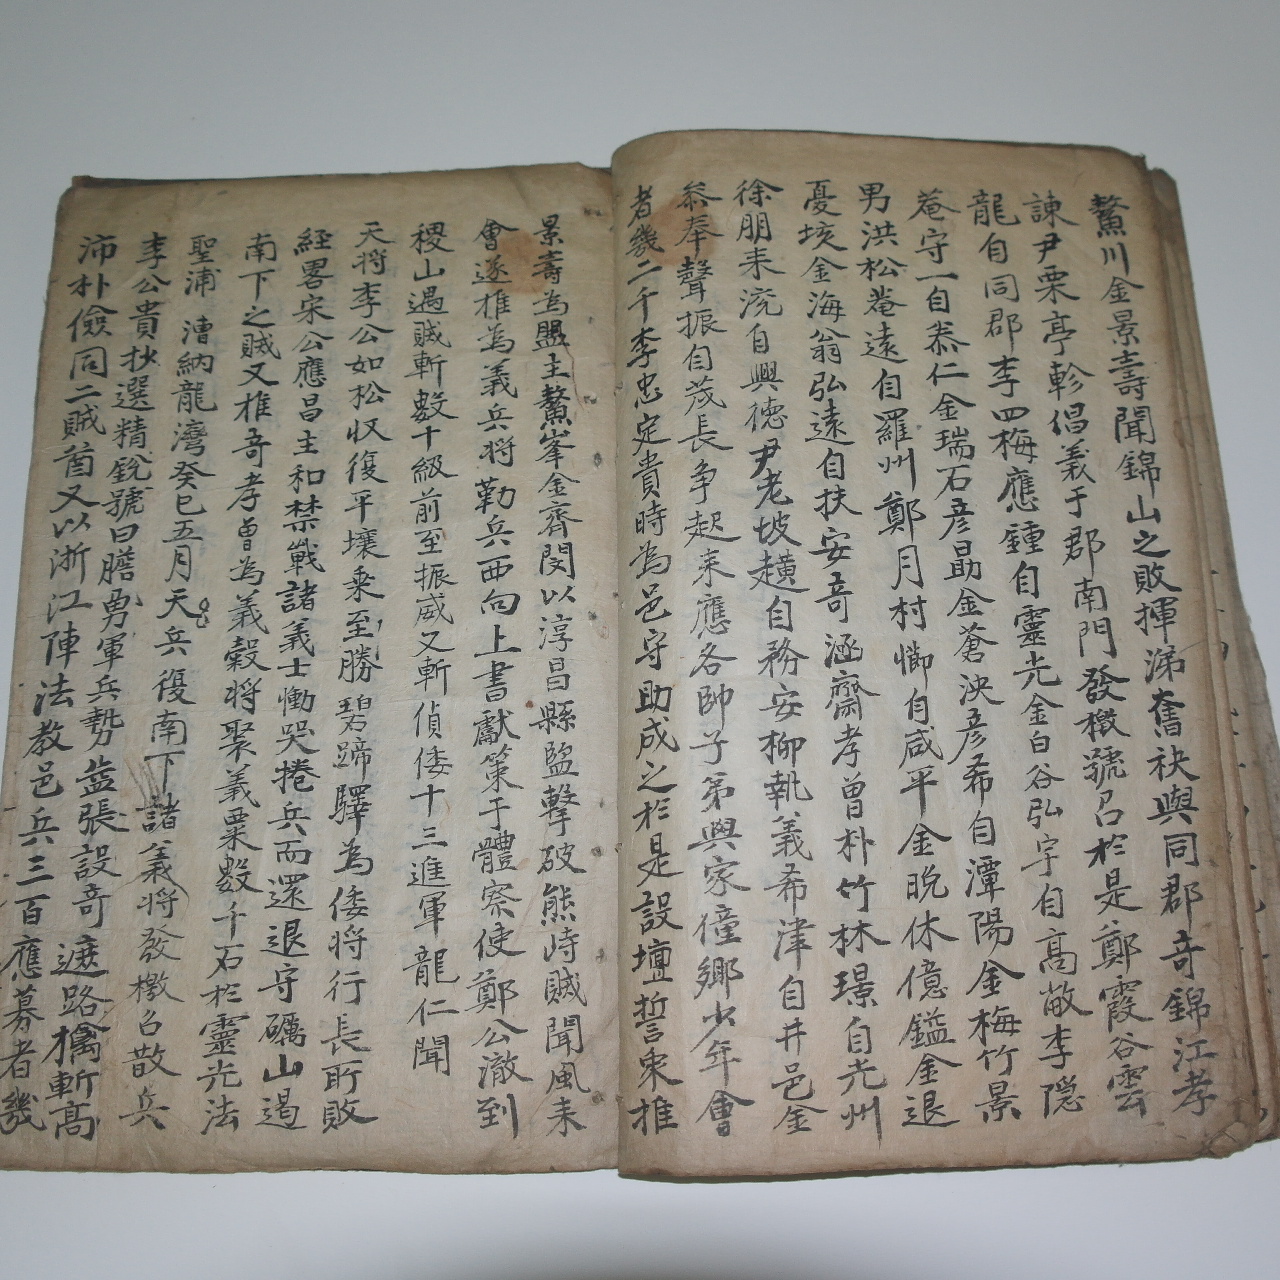 鰲川金景壽聞錦山之敗揮涕奮袂與同郡奇錦江孝
諫尹栗亭軫倡義于郡南門發檄號召於是鄭霞谷雲
龍自同郡李四梅應鍾自靈光金白谷弘宇自高敞李隱
菴守一自泰仁金瑞石彦勗金蒼泱彦希自潭陽金梅竹景
男洪松菴遠自羅州鄭月村悌自咸平金晩休億鎰金退
憂垓金海翁弘遠自扶安奇涵齋孝曾朴竹林璟自光州
徐朋来浣自興德尹老坡趪自務安柳執義希津自井邑金
叅奉聲振自茂長争起来應各帥子第與家僮鄕少年會
者幾二千李忠定貴時為邑守助成之於是設壇誓衆推
景壽為盟主鰲峯金齊閔以淳昌縣監擊破熊峙賊聞風来
會遂推為義兵将勒兵西向上書獻策于體察使鄭公澈到
稷山遇賊斬數十級前至振威又斬偵倭十三進軍龍仁聞
天将李公如松収復平壤乗至勝碧蹄驛為倭将行長所敗
經畧宋公應昌主和禁戰諸義士慟哭捲兵而還退守礪山遏
南下之賊又推奇孝曾為義穀将聚義粟數千石於靈光法
聖浦漕納龍灣癸巳五月天兵復南下諸義将發檄召散兵
李公貴抄選精銳號曰膽勇軍兵勢益張設奇遮路擒斬高
沛朴儉同二賊酋又以浙江陣法敎邑兵三百應募者幾